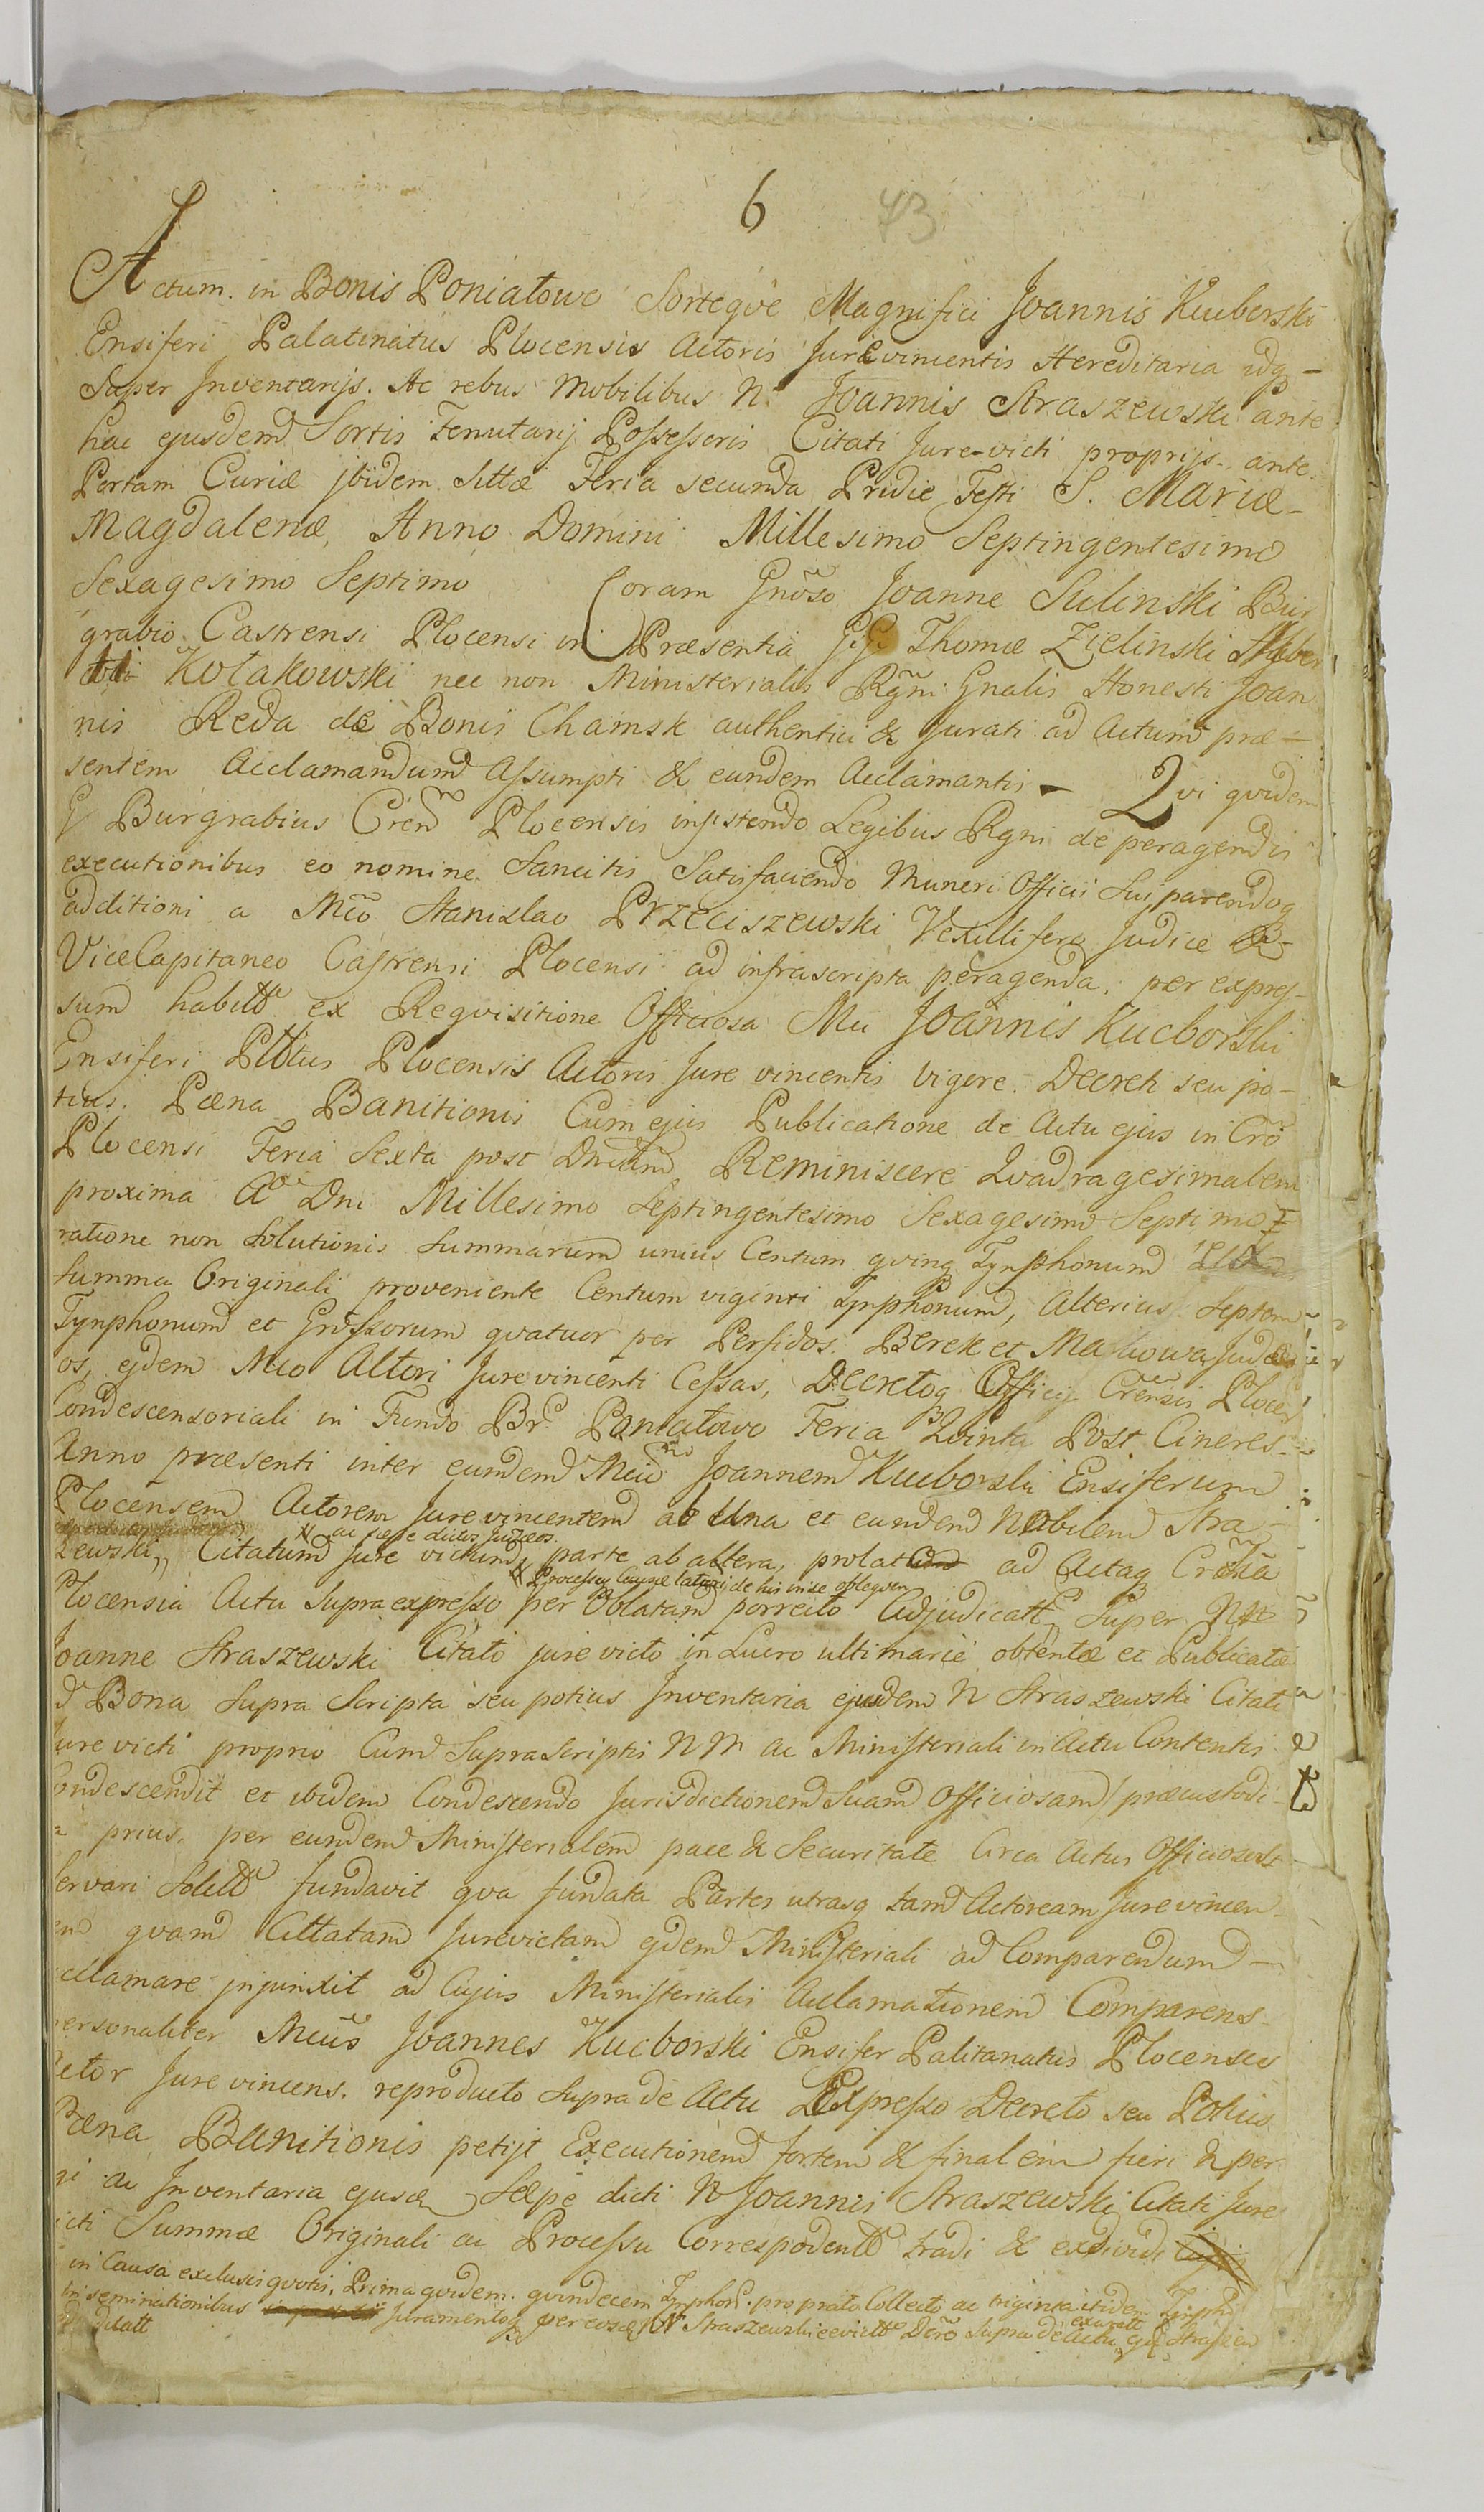 6 43
Actum in Bonis Poniatowo Sorteqve Magnifici Joannis Kucborski
Ensiferi Palatinatus Plocensis Actoris Jurevincentis Hereditaria idq3 -
Super Inventarijs. Ac rebus mobilibus N. Joannis Straszewski ante
hac ejusdem Sortis Tenutarij Possessoris Citati Jure-victi proprijs ante
Portam Curiæ jbidem Sittæ Feria secunda Pridie Festi S. Mariæ -
Magdalenæ, Anno Domini Millesimo Septingentesimo
Sexagesimo Septimo Coram Gnoso Joanne Sulinski Bur
grabio Castrensi Plocensi in Præsentia GG Thomæ Zielinski
Kołakowski nec non Ministerialis Rgni Gnalis Honesti Joan
nis Reda de Bonis Chamsk authentici & Jurati ad Actum præ -
sentem Acclamandum Assumpti & eundem Acclamantis - Qvi qvidem
G Burgrabius Cren Plocensis insistendo Legibus Rgni de peragendis
executionibus eo nomine Sancitis Satisfaciendo Muneri Officii Sui, parendoq
additioni a Mco Stanislao Przeciszewski Vexillifero Judice
ViceCapitaneo Castrensi Plocensi ad infrascripta peragenda, per expres-
sum habitte ex Reqvisitione Officiosa Mci Joannis Kucborski
Ensiferi Plttus Plocensis Actoris Jure vincentis vigore Decreti seu po-
tius Pæna Banitionis Cum ejus Publicatione de Actu ejus in Cro
Plocensi Feria Sexta post Dnicam Reminiscere Qvadragesimalem
proxima Ao Dni Millesimo Septingentesimo Sexagesimo Septimo
ratione non Solutionis Summarum unius Centum qvinq Tynphonum
Summa Originali proveniente Centum viginti Tynphonum, Alterius Septem
Tynphonum et Grossorum qvatuor per Perfidos Berek et Maskowa Judæ
os, ejdem Mco Actori Jurevincenti Cessas, Decretoq Officij Crensis Plocen
Condescensoriali in Fundo Br Poniatowo Feria Qvinta Post Cineres
Anno præsenti inter eundem Mcum Joannem Kucborski Ensiferum
Plocensem Actorem Jurevincentem ab Una et eundem Nobilem Stra
ac sæpe dictos Judæos
zewski, Citatum Jure victum, parte ab altera, prolat ad Actaq Crensia
Processu Causæ de his inde
Plocensia Actu Supraexpresso per Oblatam porrecto Adjudicatt Super N
Joanne Straszewski Citato jure victo in Lucro ultimarie obtentæ et Publicatæ
d Bona Supra Scripta seu potius Inventaria ejusdem N Straszewski Citati
Jure victi proprio Cum SupraScriptis NN ac Ministeriali in Actu Contentis
Condescendit et ibidem Condescendo Jurisdictionem Suam Officiosam præcustodi
prius, per eundem Ministerialem pace & Securitate Circa Actus Officiosos
servari Solitte fundavit qva fundata Partes utrasq tam Actoream Jurevincen
qvam Cittatam Jurevictam ejdem Ministeriali ad Comparendum -
cclamare jnjunxit ad Cujus Ministerialis Acclamationem Comparens
personaliter Mcus Joannes Kucborski Ensifer Palitanatus Plocensis
Actor Jure vincens, reproducto Supra de Actu Expresso Decreto seu Potius
Pæna Banitionis petijt Executionem fortem & finalem fieri & per
gi ac Inventaria ejusd Sæpe dicti N Joannis Straszewski Citati Jure
icti Summæ Originali ac Processu Correspodentte tradi & exdividi
in Causa exclusis qvotis, Prima qvidem qvindecem Tynphor. pro prato Collecto ac triginta itidem Tynph
in seminationibus Juramentoq per eosq N Straszewski Dcro Supra de Actu